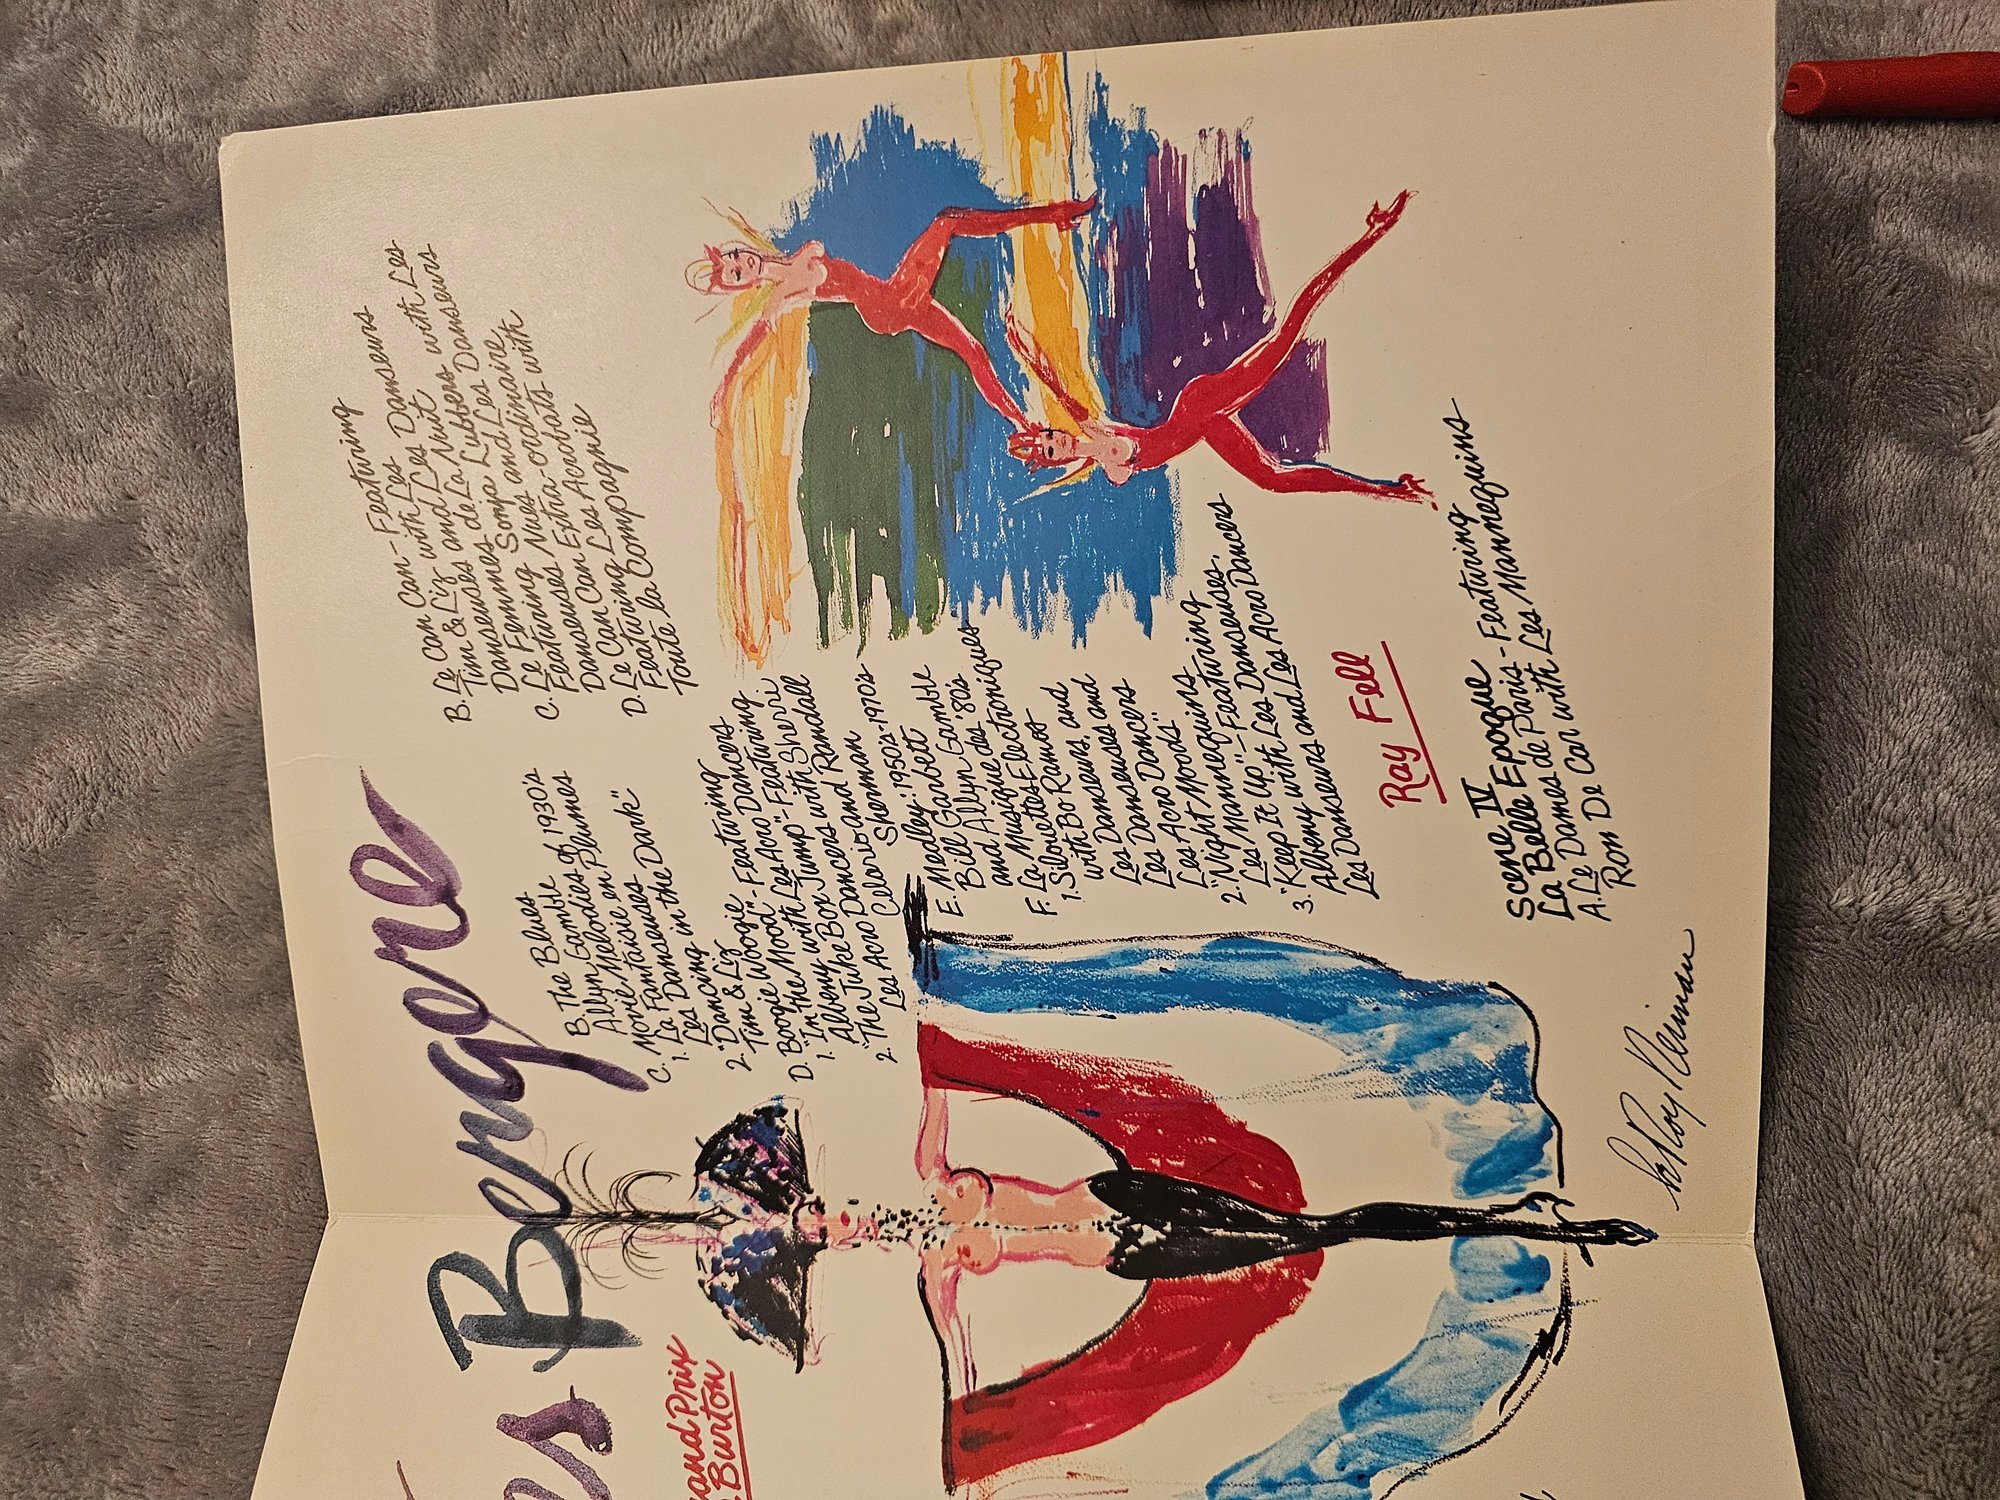 es Bergere
and Prix
Burton
B. The Blues
Allyn Gamble
C. Movie Melodies of 1930's
1. La Fantaisie en Plumes
Les Danseuses
2. "Dancing in the Dark"
Tim & Liz
D. Boogie Woogie
1. "In the Mood" - Featuring
Albeny with Les Acro Dancers
2. "The Juke Box Jump" - Featuring
Les Acro Dancers with Sherri
Celario and Randall
Sherman
E. Medley: 1950's-1970's
Bill Garbett
and Allyn Gamble
F. La Musique des '80's
1. Silouettes Electroniques
with Bo Ramos
Les Danseuses, and
Les Danseurs and
Les Acro Dancers
2. "Night Moods"
Les Mannequins
3. "Keep It Up" - Featuring
Albeny with Les Danseuses,
Les Danseurs and Les Acro Dancers
Ray Fell
Scene IV
La Belle Epoque
A. Le Dames de Paris - Featuring
Ron De Car with Les Mannequins
B. Le Can Can - Featuring
Tim & Liz with Les
Danseuses and Les Danseurs
C. Le Femmes de La Nuit
Featuring Sonja Lubbers with Les
Danseuses Nues and Les Danseurs
D. Le Can Can Extra-ordinaire
Featuring Les Acrobats with
Toute la Compagnie
LeRoy Neiman